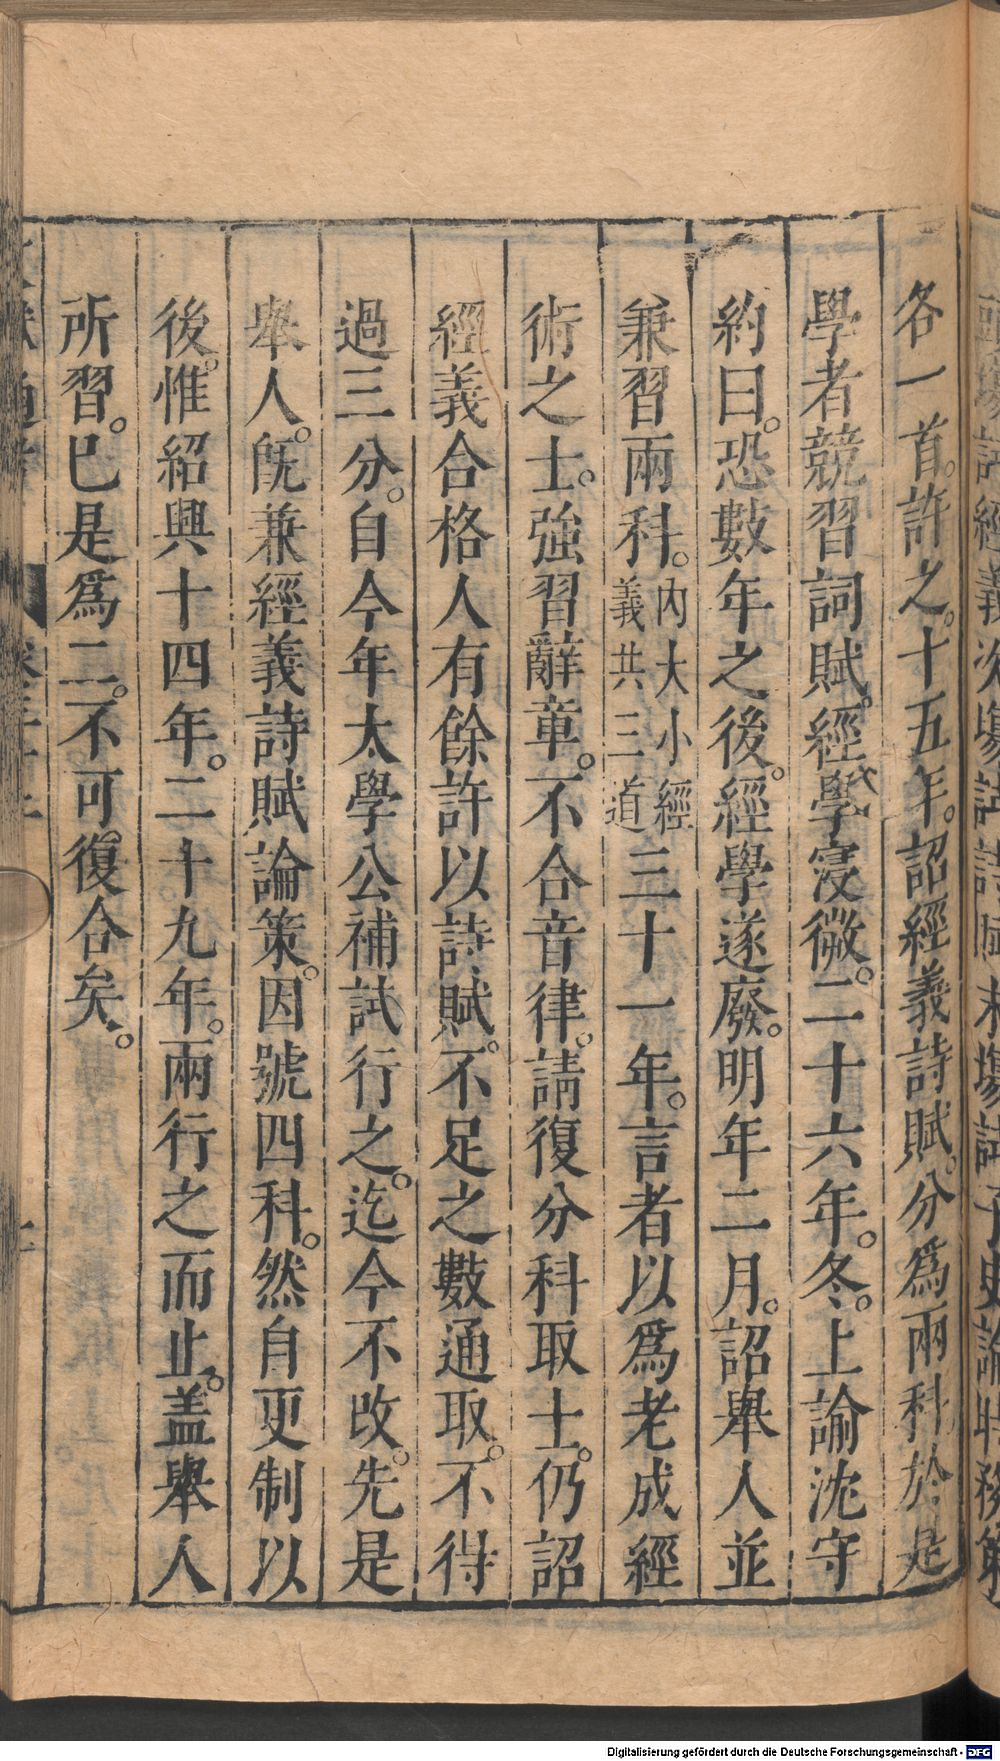 各一首。許之。十五年。詔經義詩賦。分爲兩科。於是
學者競習詞賦。經學寖微。二十六年。冬。上諭沈守
約曰。恐數年之後。經學遂廢。明年二月。詔舉人並
兼習兩科。內大小經義共三道三十一年。言者以爲老成經
術之士。強習辭章。不合音律。請復分科取士。仍詔
經義合格人有餘許以詩賦。不足之數通取。不得
過三分。自今年太學公補試行之。迄今不改。先是
舉人。旣兼經義詩賦論策。因號四科。然自更制以
後。惟紹興十四年。二十九年。兩行之而止。盖舉人
所習。已是爲二。不可復合矣。
Digitalisierung gefördert durch die Deutsche Forschungsgemeinschaft - DFG